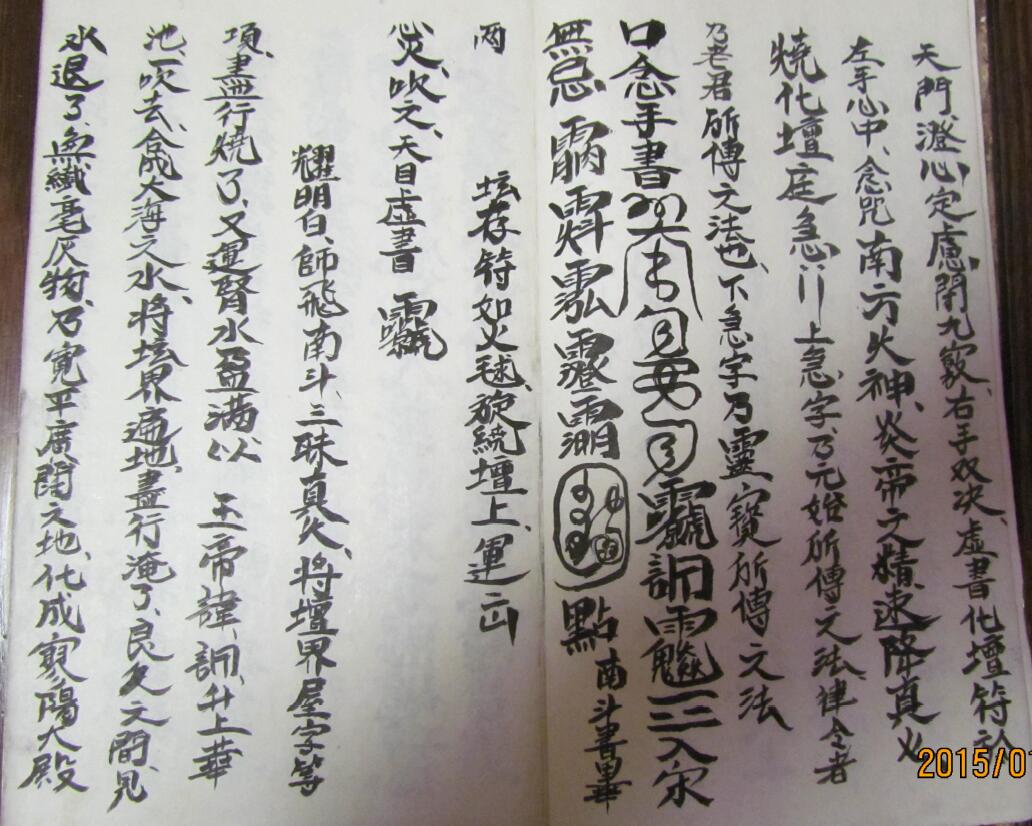 天門、澄心定慮、閉九竅、右手双决、虚書化壇符於
左手心中、念咒南方火神、炎帝之精、速降真火
燒化壇庭急〻上急字、乃元始所傳之法、律令者
乃老君所傳之法也、下急字乃靈寶所傳之法
口念手書
無忌
點南斗書畢
兩
坛存符如火毬、旋繞壇上、運
心火吹之、天目虛書
耀明白、師飛南斗、三昧真火、將壇界屋宇等
項、盡行燒了、又運腎水盈滿以 玉帝諱、䚯、升上華
池、一吹去、合成大海之水、將坛界痛地、盡行淹了、良久之間、見
水退了、無纖毫灰物、乃寬平廣闊之地、化成寥陽大殿
2015/0